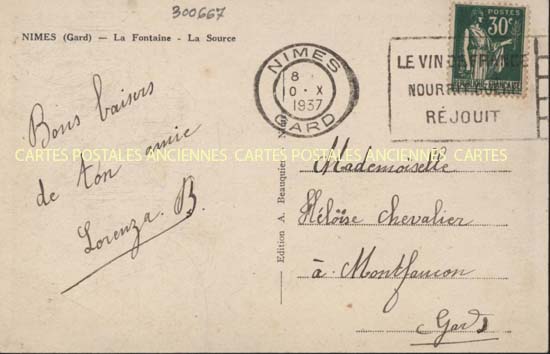 300667
NIMES (Gard) — La Fontaine - La Source
POSTES
30c
NIMES
8
10 · X
1937
GARD
LE VIN DE FRANCE
NOURRIT
RÉJOUIT
Bons baisers
de ton amie
Lorenza. B.
CARTES POSTALES ANCIENNES CARTES POSTALES ANCIENNES CARTES
Edition A. Beauquier
Mademoiselle
Héloïse Chevalier
à Montfaucon
Gard